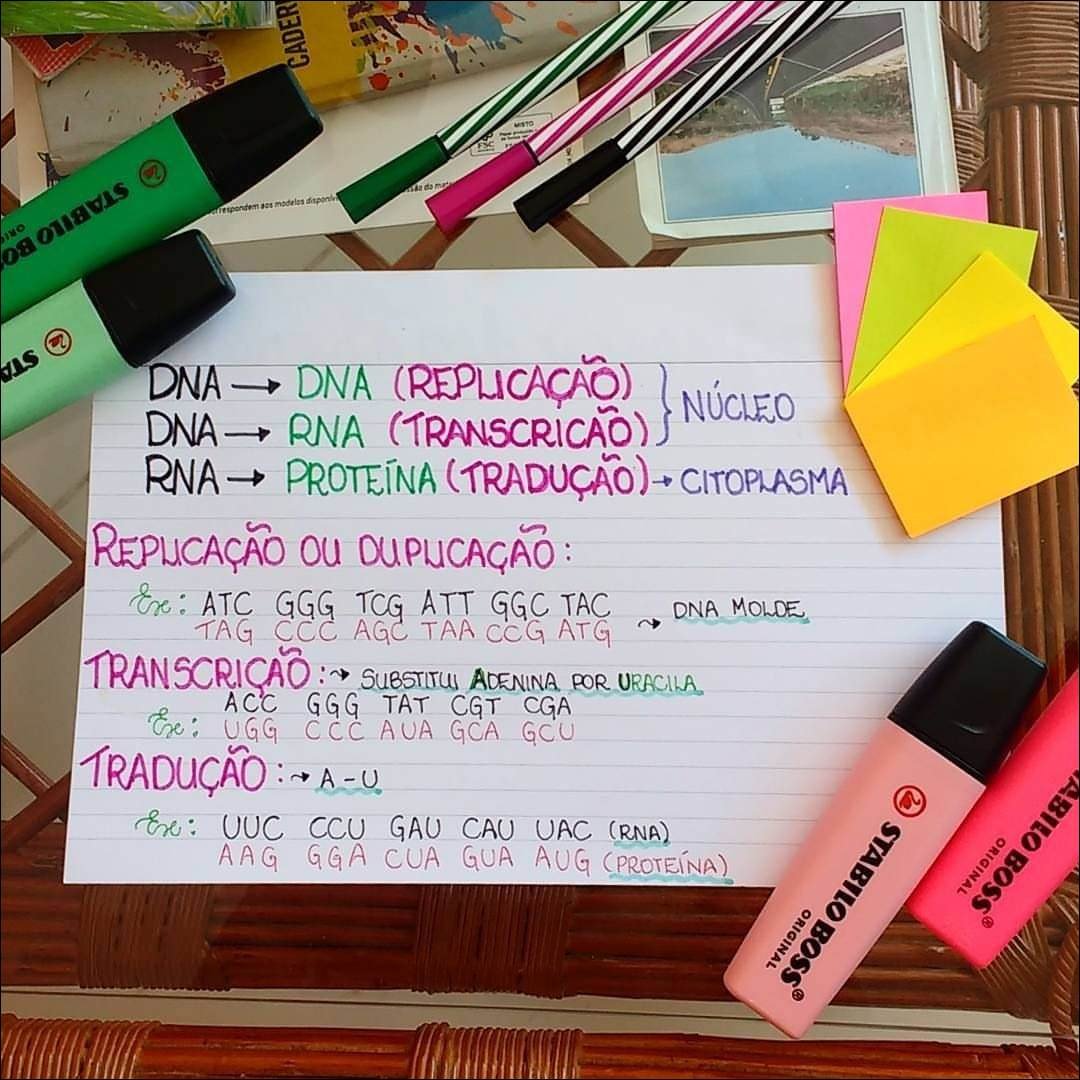 CADER
MISTO
FSC
orrespondem aos modelos disponíve
ssão do mate
STABILO BOSS
ORIGINAL
STA
DNA → DNA (REPLICAÇÃO)
DNA → RNA (TRANSCRICÃO)
} NÚCLEO
RNA → PROTEÍNA (TRADUÇÃO) → CITOPLASMA
REPLICAÇÃO OU DUPLICAÇÃO:
Ex: ATC GGG TCG ATT GGC TAC
TAG CCC AGC TAA CCG ATG → DNA MOLDE
TRANSCRIÇÃO: → SUBSTITUI ADENINA POR URACILA
ACC GGG TAT CGT CGA
Ex: UGG CCC AUA GCA GCU
TRADUÇÃO: → A-U
Ex: UUC CCU GAU CAU UAC (RNA)
AAG GGA CUA GUA AUG (PROTEÍNA)
STABILO BOSS
ORIGINAL
STABILO BOSS
ORIGINAL